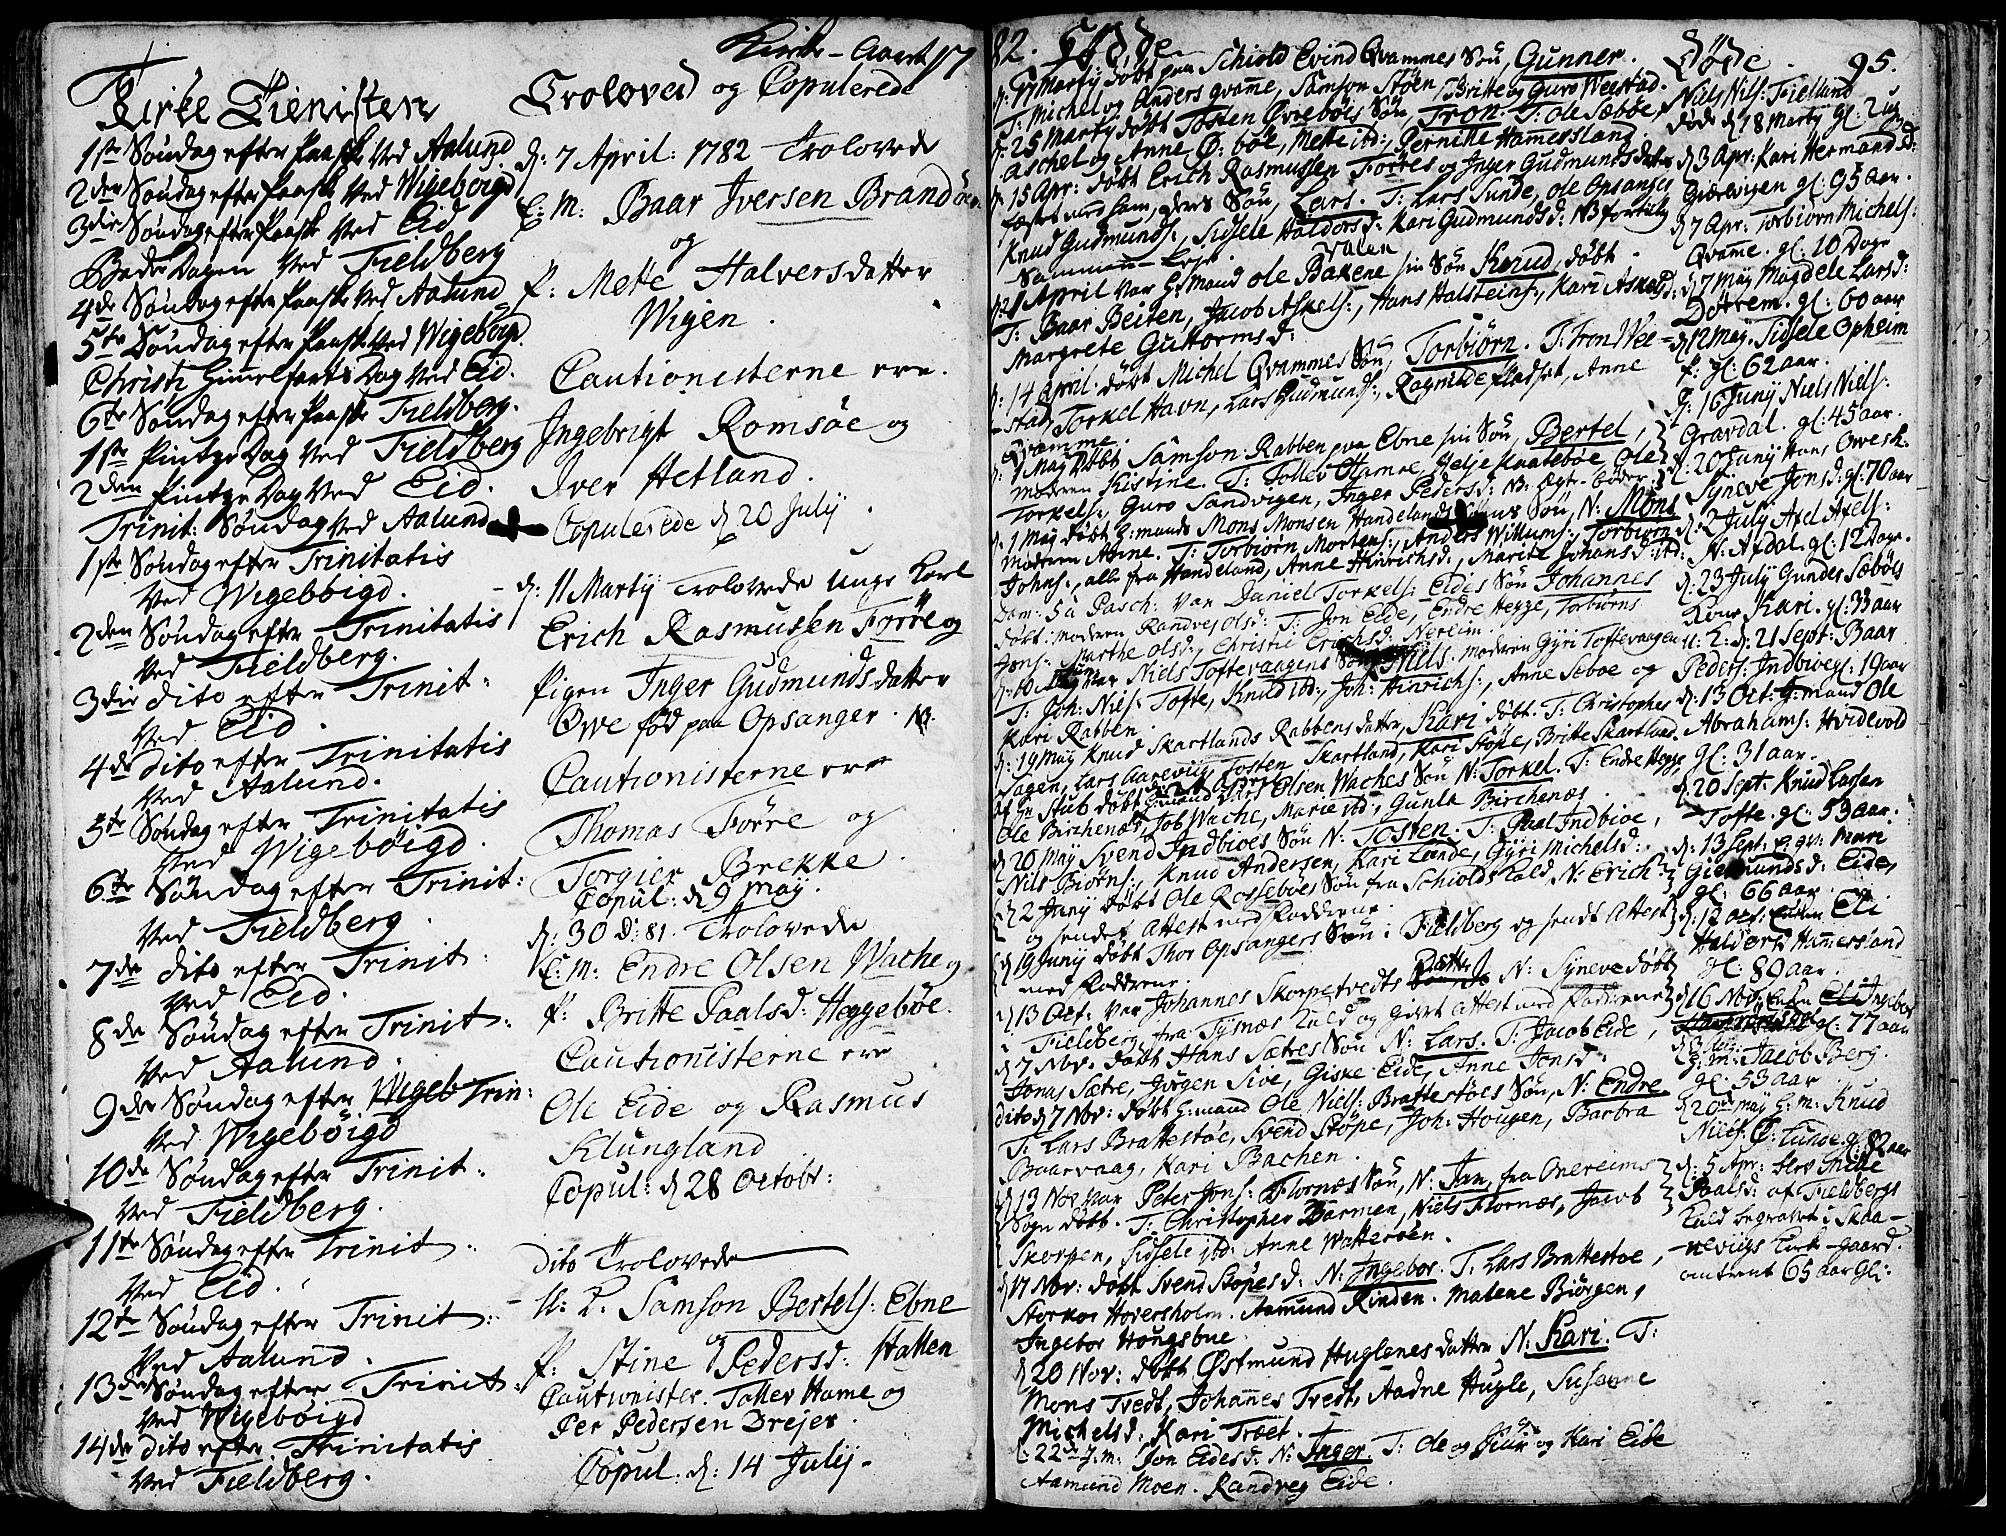 Kirke-Aaret 17
Kirke Tienisten
1ste Søndag efter Paaske ved Aalund
2den Søndag efter Paaske ved Wigebøigd
3die Søndag efter Paaske ved Eid
Bededagen ved Fieldberg
4de Søndag efter Paaske ved Aalund
5te Søndag efter Paaske ved Wigebøigd.
Christi Himmelfarts Dag ved Eid.
6te Søndag efter Paaske Fieldberg.
1ste Pintze Dag ved Fieldberg
2den Pintze Dag ved Eid.
Trinit: Søndag ved Aalund
1ste Søndag efter Trinitatis
ved Wigebøigd.
2den Søndag efter Trinitatis
ved Fieldberg.
3die dito efter Trinit:
ved Eid.
4de dito efter Trinitatis
ved Aalund.
5te Søndag efter Trinitatis
ved Wigebøigd.
6te Søndag efter Trinit:
ved Fieldberg.
7de dito efter Trinit:
ved Eid.
8de Søndag efter Trinit:
ved Aalund.
9de Søndag efter Wigeb Trin:
ved Wigebøigd
10de Søndag efter Trinit:
ved Fieldberg.
11te Søndag efter Trinit:
ved Eid.
12te Søndag efter Trinit:
ved Aalund.
13de Søndag efter Trinit:
ved Wigebøigd
14de dito efter Trinitatis
ved Fieldberg.
Troloved og Copulerede
d: 7 April: 1782 Trolovede
E: M: Baar Iversen Brandøen
og
P: Mette Halversdatter
Wigen.
Cautionisterne ere.
Ingebrigt Romsøe og
Iver Hetland.
Copulerede d 20 July.
d: 11 Marty Trolovede unge Karl
Erich Rasmussen Førre og
Pigen Inger Gudmundsdatter
Øwe fød paa Opsanger. NB.
Cautionisterne ere
Thomas Førre og
Torgier Brekke.
Copul: d 9 May.
d: 30 D: 81. Trolovede
E: M: Endre Olsen Wache og
P: Britte Paalsd: Heggebøe.
Cautionisterne ere
Ole Eide og Rasmus
Klungland
Copul: d 28 Octobr:
dito Trolovede
U: K. Samson Bertels: Ebne
og
P: Stine Pedersd: Hatten
Cautionister. Tollev Hame og
Per Pedersen Drejer.
Copul: d: 14 July.
82. Fødde
d: 17 Marty døbt paa Schiold Evind Qvammes Søn, Gunner.
T: Michel og Anders Qvame, Samson Støen, Britte og Guro Weestad.
d: 25 Marty døbt Tosten Øvrebøes Søn, Tron. T: Ole Sæbbøe,
Aschel og Anne Ø: bøe, Mette ibd: Pernille Hamersland.
d: 15 Apr: døbt Erich Rasmussen Førres og Inger Gudmundsdatters
deres Søn, Lars. T: Lars Sunde, Ole Opsanger
Knud Gudmunds:, Sidsele Haldorsd: Kari Gudmundsd: NB fortiilig
d: 1 April var H: Mand Ole Bakene sin Søn Knud, døbt.
T: Baar Beiten, Jacob Askels:, Hans Halsteins:, Kari Askelsd:
Margrete Guttormsd:
d: 14 April døbt Michel Qvammes Søn, Torbiørn. T: Tron Wee-
stad, Torkel Havn, Lars Gudmunds:, Ragnilde Pladset, Anne
Qvamme.
d: 1 May døbt Samson Rabben paa Ebne sin Søn, Bertel,
Moderen Kistine. T: Tollev Hamre, Helje Knatebøe Ole
Torkels:, Guro Sandvigen, Inger Pedersd: NB: Ægte-Føder.
d: 1 May døbt H: mands Mons Monsen Handelands Søn, N: Mons
Moderen Anne. T: Torbiørn Mortens:, Anders Willums:, Torbiørn
Johns:, alle fra Handeland, Anne Hinrichsd:, Marite Johansd: ibd:
Dom: 5a Pasch: var Daniel Torkels: Eides Søn Johannes
døbt: Moderen Randvei Olsd: T: Jon Eide, Endre Hegge, Torbiørns
Jons: Marthe Olsd:, Christie Erichsd: Nereim.
d: 10 May var Niels Toftevaagens Søn, Niels. Moderen Gyri Toftevaagen
T: Joh: Niels: Tofte, Knud ibd:, Joh: Hinrichs:, Anne Seboe og
Kari Rabben.
d: 19 May Knud Skartlands Rabbens datter, Kari døbt. T: Christopher
Lars Aarevig, Tosten Skartland, Kari Støpe, Britte Skartland.
Olsen Waches Søn N: Torkel. T: Endre Hegge,
Ole Birchenæs, Job Wache, Marie ibd:, Gunla Birchenæs.
d 20 May Svend Indbioes Søn N: Tosten. T: Paal Indbioe,
Nils Biørns:, Knud Andersen, Kari Lande, Gyri Michelsd:
d 2 Juny døbt Ole Rossebøes Søn fra Schiolds Kald, N: Erich
og sendes Attest med Fadderne.
d 19 Juny døbt Thor Opsangers Søn i Fieldberg og sendt Attest
med Fadderne.
d 13 Oct: var Johannes Skorpetvedts Datter N: Syneve døbt
i Fieldberg fra Tysnæs Kald og givet Attest med Fadderne
d 7 Nov: døbt Hans Sætres Søn N: Lars. T: Jacob Eide,
Jonas Sætre, Jørgen Sive, Giske Eide, Anne Jonsd:
dito d 7 Nov: døbt H: mand Ole Niels: Brattestøes Søn, N: Endre
T: Lars Brattestøe, Svend Støpe, Joh: Hougen, Barbra
Baarvaag, Kari Bachen.
d 13 Nov var Peter Jons: Flornæs Søn, N: Jan, fra Onereims
Sogn døbt. T: Christopher Barmen, Niels Flornæs, Jacob
Skorpen, Sidsele ibd: Anne Watterøen.
d 17 Nov: døbt Svend Støpes d: N: Ingebor. T: Lars Brattestøe,
Storkor Hoversholm. Aamund Rinden. Malene Biørgen,
Ingebor Hougsbue.
d 20 Nov: døbt Østmund Huglenes datter N: Kari. T:
Mons Tvedt, Johannes Tvedt, Aadne Hugle, Susanne
Michelsd: Kari Træet.
d: 22de J: M: Jon Eides d: N: Inger. T: Ole og og Kari Eide
Aamund Moen. Randveg Eide.
Døde. 95.
Niels Nils: Fielland
døde d 18 Marty gl: 2 ug
d 3 Apr: Kari Hermandsd:
gl: 95 Aar.
d 7 Apr: Torbiørn Michels:
Qvame. gl: 10 Dage
d: 7 May Magdele Larsd:
Døtrem. gl: 60 aar
d 12 May. Sidsele Opheim
P: gl: 62 aar.
d: 16 Juny Niels Niels:
Gravdal. gl: 45 aar.
d: 20 Juny Hans
Syneve Jonsd: gl: 70 aar
d: 2 July Axel Axels:
N: Axdal. gl: 12 Dage.
d: 23 July Gundes Sæbøes
Kone Kari. gl: 33 aar
d: 21 Sept: Baar
Peders: Indbioe gl: 19 aar
d: 13 Oct: H: mand Ole
Abrahams: Hvidevold
gl: 31 aar.
d: 20 Sept. Knud Larsen
Tofte. gl: 53 aar.
d: 13 Sept: gv: Mari
Giermundsd: Eide,
gl: 66 aar.
d: 12 Eli
Haldors: Hamersland
gl: 80 aar.
d 16 Nov: Enken Ingebor
gl: 77 aar
H: M: Jacob Berg.
gl: 53 aar
d 20de May H: M: Knud
Niels: Ø: Lunde. gl: 82 aar
d: 5 Apr:
Paalsd: af Fieldbergs
Kald begravet i Skaa-
nevigs Kirke-gaard.
omtrent 65 aar Gl: